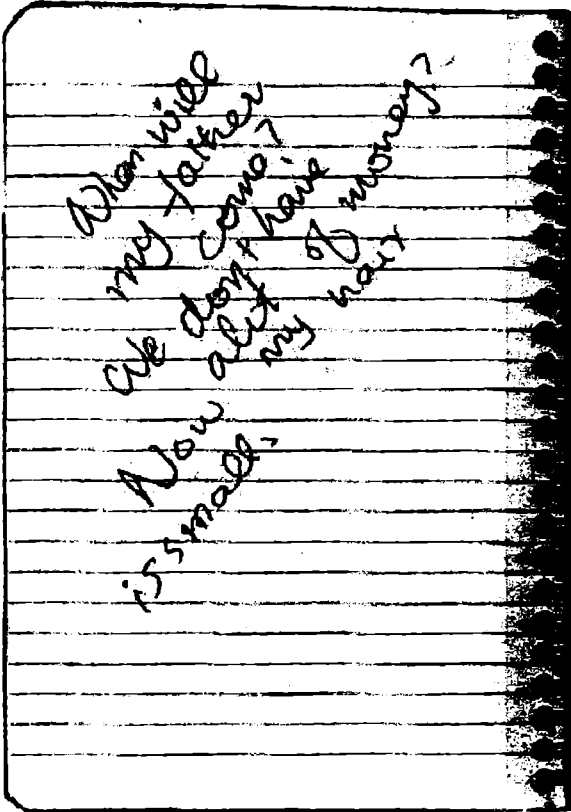 When will
my father
come?
We don't have
alit of money?
Now my hair
is small.